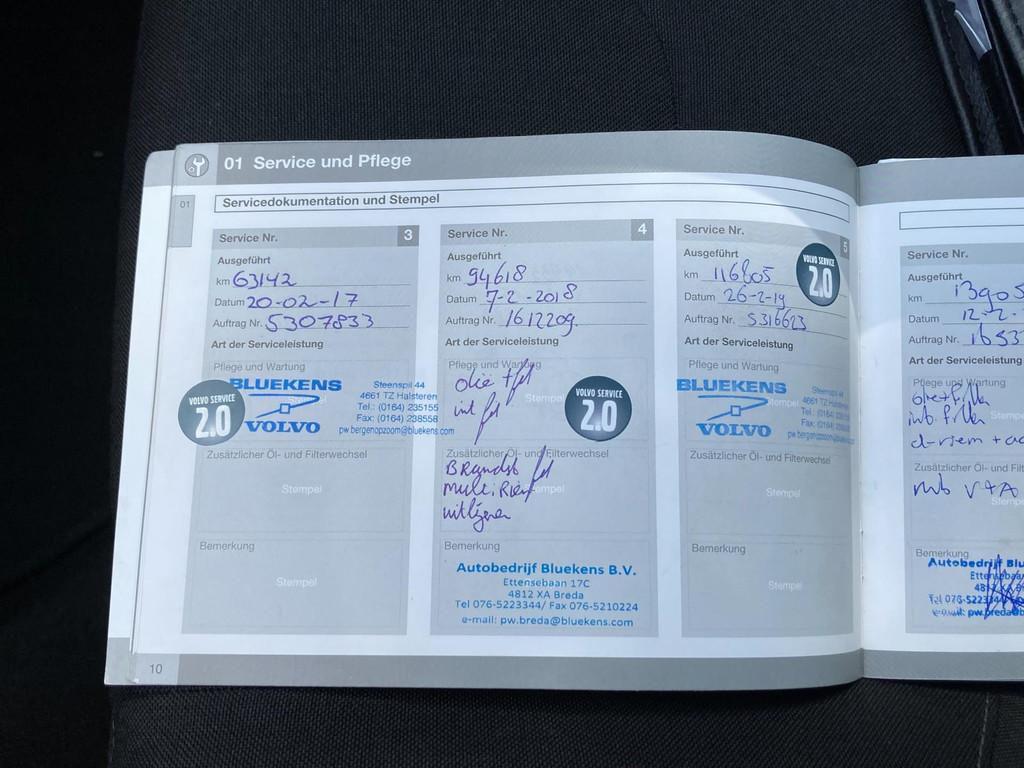 01 Service und Pflege
01
Servicedokumentation und Stempel
Service Nr. 3
Ausgeführt
km 63142
Datum 20-02-17
Auftrag Nr. 5307833
Art der Serviceleistung
Pflege und Wartung
VOLVO SERVICE
2.0
BLUEKENS
VOLVO
Steenspil 44
4661 TZ Halsteren
Tel.: (0164) 235155
Fax: (0164) 238558
pw.bergenopzoom@bluekens.com
Zusätzlicher Öl- und Filterwechsel
Stempel
Bemerkung
Stempel
Service Nr. 4
Ausgeführt
km 94618
Datum 7-2-2018
Auftrag Nr. 161220g.
Art der Serviceleistung
Pflege und Wartung
olie + fil
int fil
Stempel
VOLVO SERVICE
2.0
Zusätzlicher Öl- und Filterwechsel
Brandst fil
multiRiem
Stempel
Bemerkung
Autobedrijf Bluekens B.V.
Ettensebaan 17C
4812 XA Breda
Tel 076-5223344/ Fax 076-5210224
e-mail: pw.breda@bluekens.com
Service Nr. 5
VOLVO SERVICE
2.0
Ausgeführt
km 116805
Datum 26-2-19
Auftrag Nr. 5316623
Art der Serviceleistung
Pflege und Wartung
BLUEKENS
Stempel
VOLVO
Steenspil 44
4661 TZ Halsteren
Tel.: (0164)
Fax: (0164)
pw.bergenopzoom@bluekens
Zusätzlicher Öl- und Filterwechsel
Stempel
Bemerkung
Stempel
10
Service Nr.
Ausgeführt
km
Datum 12-2-
Auftrag Nr. 1653
Art der Serviceleistung
Pflege und Wartung
Zusätzlicher Öl- und Fil
V+A
Bemerkung
Autobedrijf Blu
Ettensebaa
Tel 076-52233
e-mail: pw.breda@b